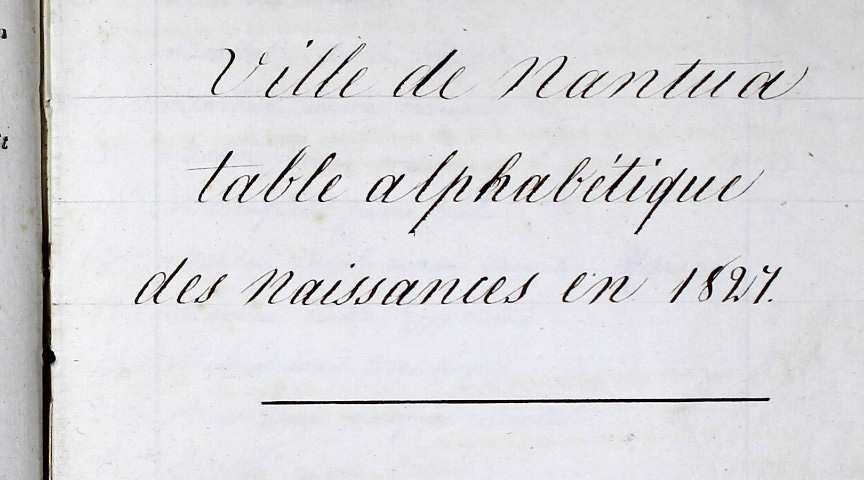 Ville de Nantua
table alphabétique
des naissances en 1827.